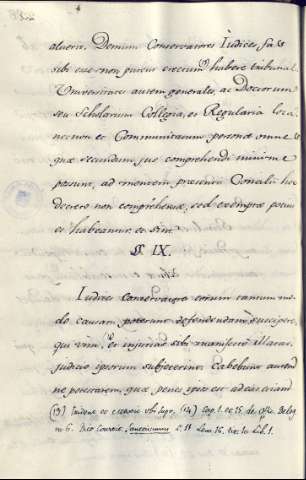 alucro. Demum Conservatores Iudices
sibi esse non putent erectum habere tribunal.
Universitates autem generales, ac Doctorum
seu Scholarium Collegia, et Regularia loca
necnon et Communitatum personæ omnes
quæ secundum jus comprehendi minime
possunt, ad mentem præsentis Concilii hoc
decreto non comprehensæ, sed exemptæ
et habeantur, et sint.
§. IX.
Iudices Conservatores eorum tantum mo-
do causam poterunt defendendam suscipere,
qui vim, et injuriam sibi manifestè illatas
judicio ipsorum subjecerint. Cabebunt autem
ne potestatem, quæ penes ipsos est ad
(13) (14) Cap. 1. et 15. de offic. Deleg.
n 6. Lib. 1.